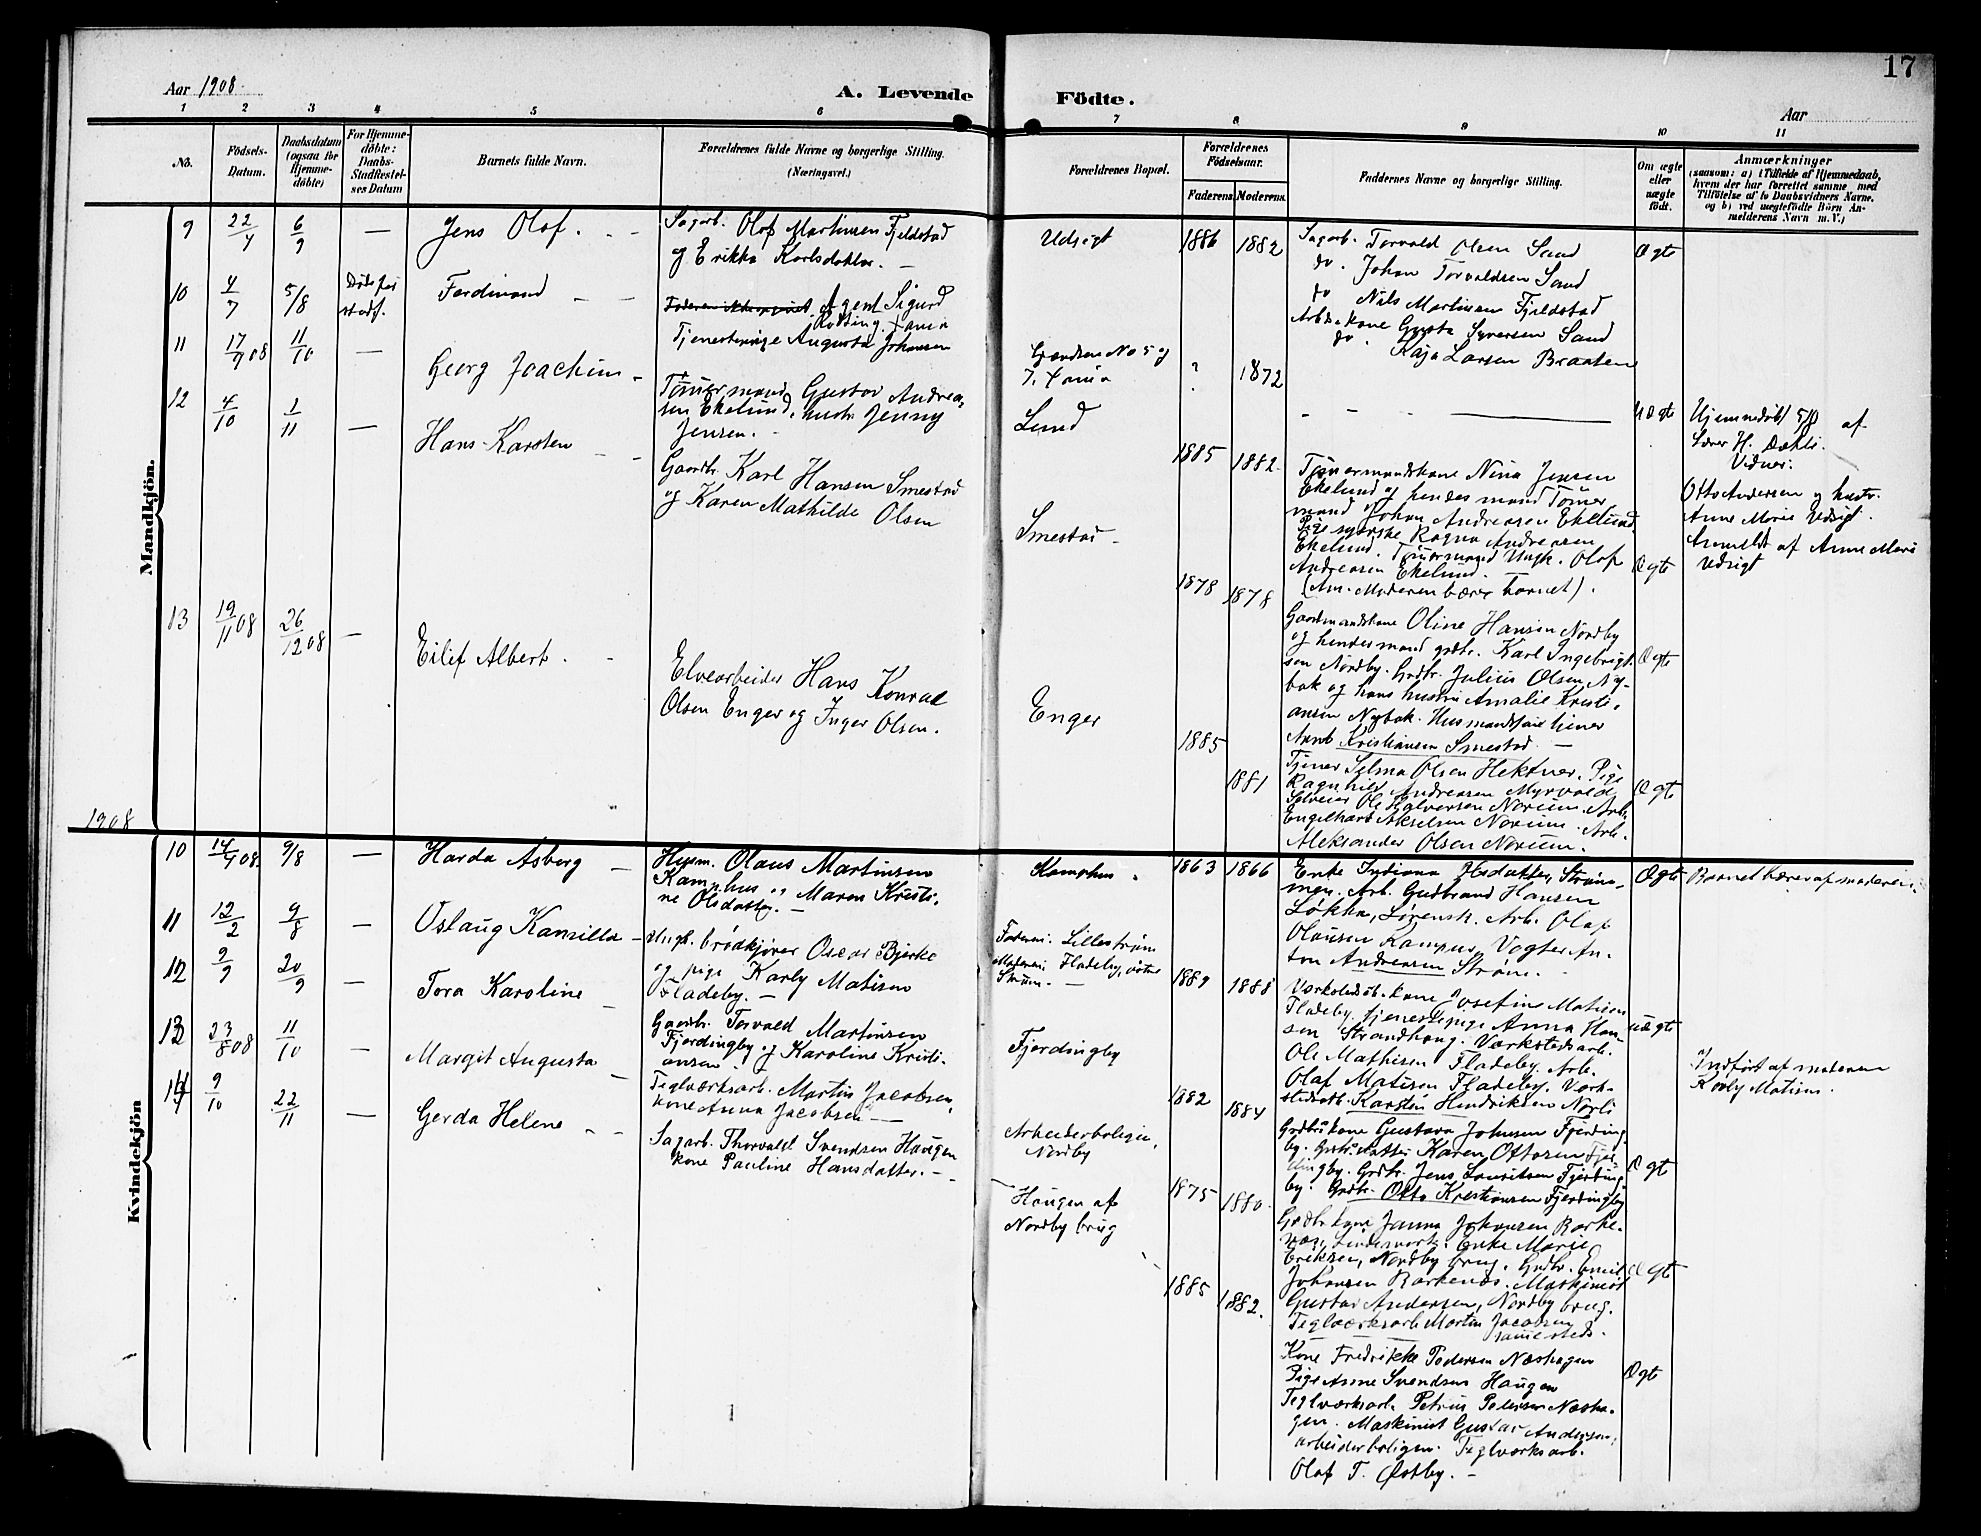 17
Aar 1908.
A. Levende
Födte.
Aar
1 2 3 4 5 6 7 8 9 10 11
No.
Födsels-
Datum.
Daabsdatum
(ogsaa for
Hjemme-
döbte)
For Hjemme-
döbte:
Daabs-
Stadfestel-
ses Datum
Barnets fulde Navn.
Forældrenes fulde Navne og borgerlige Stilling.
(Næringsvei.)
Forældrenes Bopæl.
Forældrenes
Födselsaar.
Faderens
Moderens
Faddernes Navne og borgerlige Stilling.
Om ægte
eller
uægte
födt.
Anmærkninger
(saasom: a) i Tilfælde af Hjemmedaab,
hvem der har forrettet samme, med
Tilföielse af to Daabsvidners Navne,
og b) ved uægtefödte Börn An-
melderens Navn m. V.)
Mandkjön.
9
22/4
6/9
—
Jens Olaf.
Sagarb. Olaf Martinsen Fjeldstad
og Erikka Karlsdatter. —
Udsigt
1886
1882
Sagarb. Torvald Olsen Sand
do. Johan Torvaldsen Sand
do Nils Martinsen Fjeldstad
Arb.s kone Gusta Syversen Sand
do. Kaja Larsen Braaten
Ægte
10
4/7
5/8
Ferdinand
Agent Sigurd
Tjenestepige Augusta Johansen
Grændsen No 5 og
7. Xania
?
1872
Uægte
Hjemmedøbt 5/8 af
Lærer H. Dahli.
Vidner:
Otto Andersen og hustr.
Anne Marie Udsigt.
Anmeldt af Anne Marie
Udsigt
11
17/9 08
11/10
—
Georg Joachim
Tømmermand Gustav Andrea-
sen Ekelund, hustr. Jenny
Jensen.
Lund
1885
1882.
Tømermandskone Nina Jensen
Ekelund og hendes mand Tømer
mand Johan Andreasen Ekelund.
Pige Ragna Andreasen
Ekelund. Tømermand Ungk. Olaf
Andreasen Ekelund.
(Anm. Moderen bærer barnet).
Ægte
12
4/10
1/11
—
Hans Karsten
Gaardbr. Karl Hansen Smestad
og Karen Mathilde Olsen
Smestad
1878
1878
Gaardmandskone Oline Hansen Nordby
og hendes mand grdbr. Karl Ingebrigt-
sen Nordby. Grdbr. Julius Olsen Ny-
bak og hans hustru Amalie Kristi-
ansen Nybak. Husmandssøn tjener
Arnt Kristiansen Smestad. —
Ægte
13
19/11 08
26/12 08
—
Eilef Albert.
Elvearbeider Hans Konrad
Olsen Enger og Inger Olsen.
Enger
1885
1881
Tjener Selma Olsen Hektner. Pige
Ragnhild Andreasen Myrvold
Selveier Ole Halvorsen Norum. Arb.
Engelhart Akselsen Norum. Arb.
Aleksander Olsen Norum.
Ægte
1908
Kvindekjön
10
14/4 08.
9/8
—
Harda Asberg
Husm. Olaus Martinsen
Kamphus og Maren Kristi-
ne Olsdatter. —
Kamphus
1863
1866
Enke Indiana Olsdatter, Strøm-
men. Arb. Gudbrand Hansen
Løkka, Lørensk. Arb. Olaf
Olausen Kampus, Vogter An-
ton Andreasen Strøm.
Ægte
Barnet bæres af moderen.
11
12/2
9/8
—
Oslaug Kamilla
Ungk. brødkjører Oscar Bjerke
og pige Karly Matisen
Fladeby. —
Faderen: Lillestrøm
Moderen: Fladeby, østre
Strøm. —
1889
1888
Værkstedsarb. kone Josefine Matisen
Fladeby, tjenestepige Anna Han-
sen Strandhaug. Værkstedsarb.
Ole Mathisen Fladeby. Arb.
Olaf Matisen Fladeby. Værk-
stedsarb. Karsten Hendriksen Norli
uægte
Indført af moderen
Karly Matisen.
12
9/9
20/9
—
Tora Karoline
Gaardbr. Torvald Martinsen
Fjerdingby og Karoline Kristi-
ansen.
Fjerdingby
1882
1884
Grdbr.s kone Gustava Johnsen Fjerding-
by. Grdbr.s datter Karen Ottosen Fjer-
dingby. Grdbr. Jens Lauritsen Fjerding-
by. Grdbr. Otto Kristiansen Fjerdingby
Ægte
13
23/8 08
11/10
—
Margit Augusta
Teglværksarb. Martin Jacobsen,
kone Anna Jacobsen —
Arbeiderboligen,
Nordby
1875
1880.
Grdbr. kone Janna Johansen Barke-
næs, Enke Marie
Eriksen, Nordby brug. Grdbr. Emil
Johansen Barkenæs. Maskinist
Gustav Andersen, Nordby brug.
Teglværksarb. Martin Jacobsen
sammesteds.
Ægte
14
9/10
22/11
—
Gerda Helene
Sagarb. Thorvald Svendsen Haugen
kone Pauline Hansdatter. —
Haugen af
Nordby brug
1885
1882.
Kone Fredrikke Pedersen Næshagen
Pige Anne Svendsen Haugen
Teglværksarb. Petrus Pedersen Næsha-
gen. Maskinist Gustav Andersen,
arbeiderboligen. Teglværksarb.
Olaf T. Østby. —
Ægte